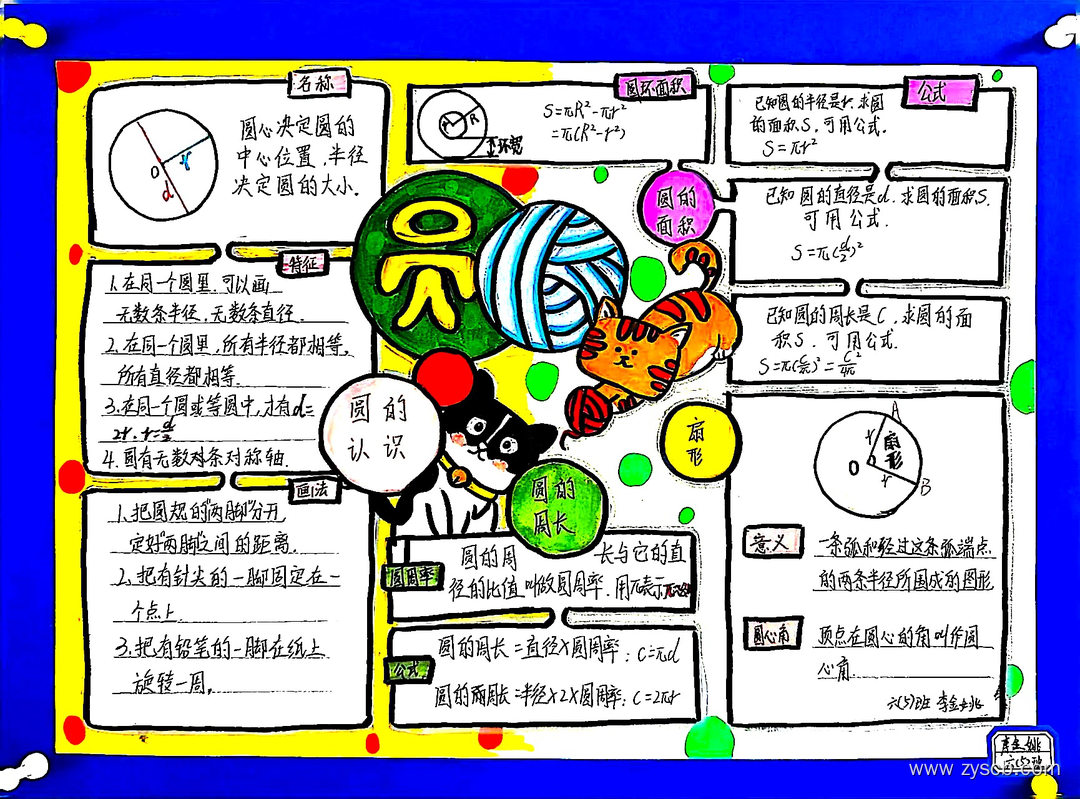 名称
圆心决定圆的
中心位置,半径
决定圆的大小.
O
r
d
特征
1.在同一个圆里,可以画
无数条半径,无数条直径.
2.在同一个圆里,所有半径都相等,
所有直径都相等.
3.在同一个圆或等圆中,才有d=
2r,r=d/2
4.圆有无数对条对称轴
画法
1.把圆规的"两脚"分开
定好"两脚"之间的距离.
2.把有针尖的一脚固定在一
个点上
3.把有铅笔的一脚在纸上
旋转一周,
圆环面积
R
环宽
S=πR²-πr²
=π(R²-r²)
圆
圆的
面积
圆的
认识
扇
形
圆的
周长
圆周率
圆的周长与它的直
径的比值叫做圆周率.用π表示
公式
圆的周长=直径×圆周率:C=πd
圆的周长=半径×2×圆周率:C=2πr
公式
已知圆的半径是r.求圆
的面积S,可用公式.
S=πr²
已知圆的直径是d.求圆的面积S,
可用公式.
S=π(d/2)²
已知圆的周长是C,求圆的面
积S.可用公式.
S=π(C/2π)²=C²/4π
A
r
O
扇
形
r
B
意义
一条弧和经过这条弧端点
的两条半径所围成的图形
圆心角
顶点在圆心的角叫作圆
心角
六(5)班 李金姚
李金姚
六(5)班